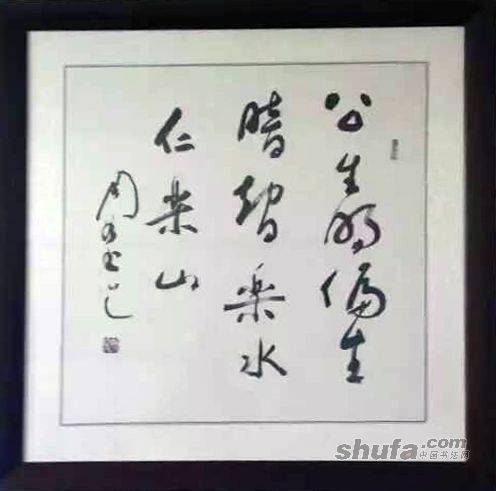 公生明偏生
暗智乐水
仁乐山
shufa.com
中国书法网